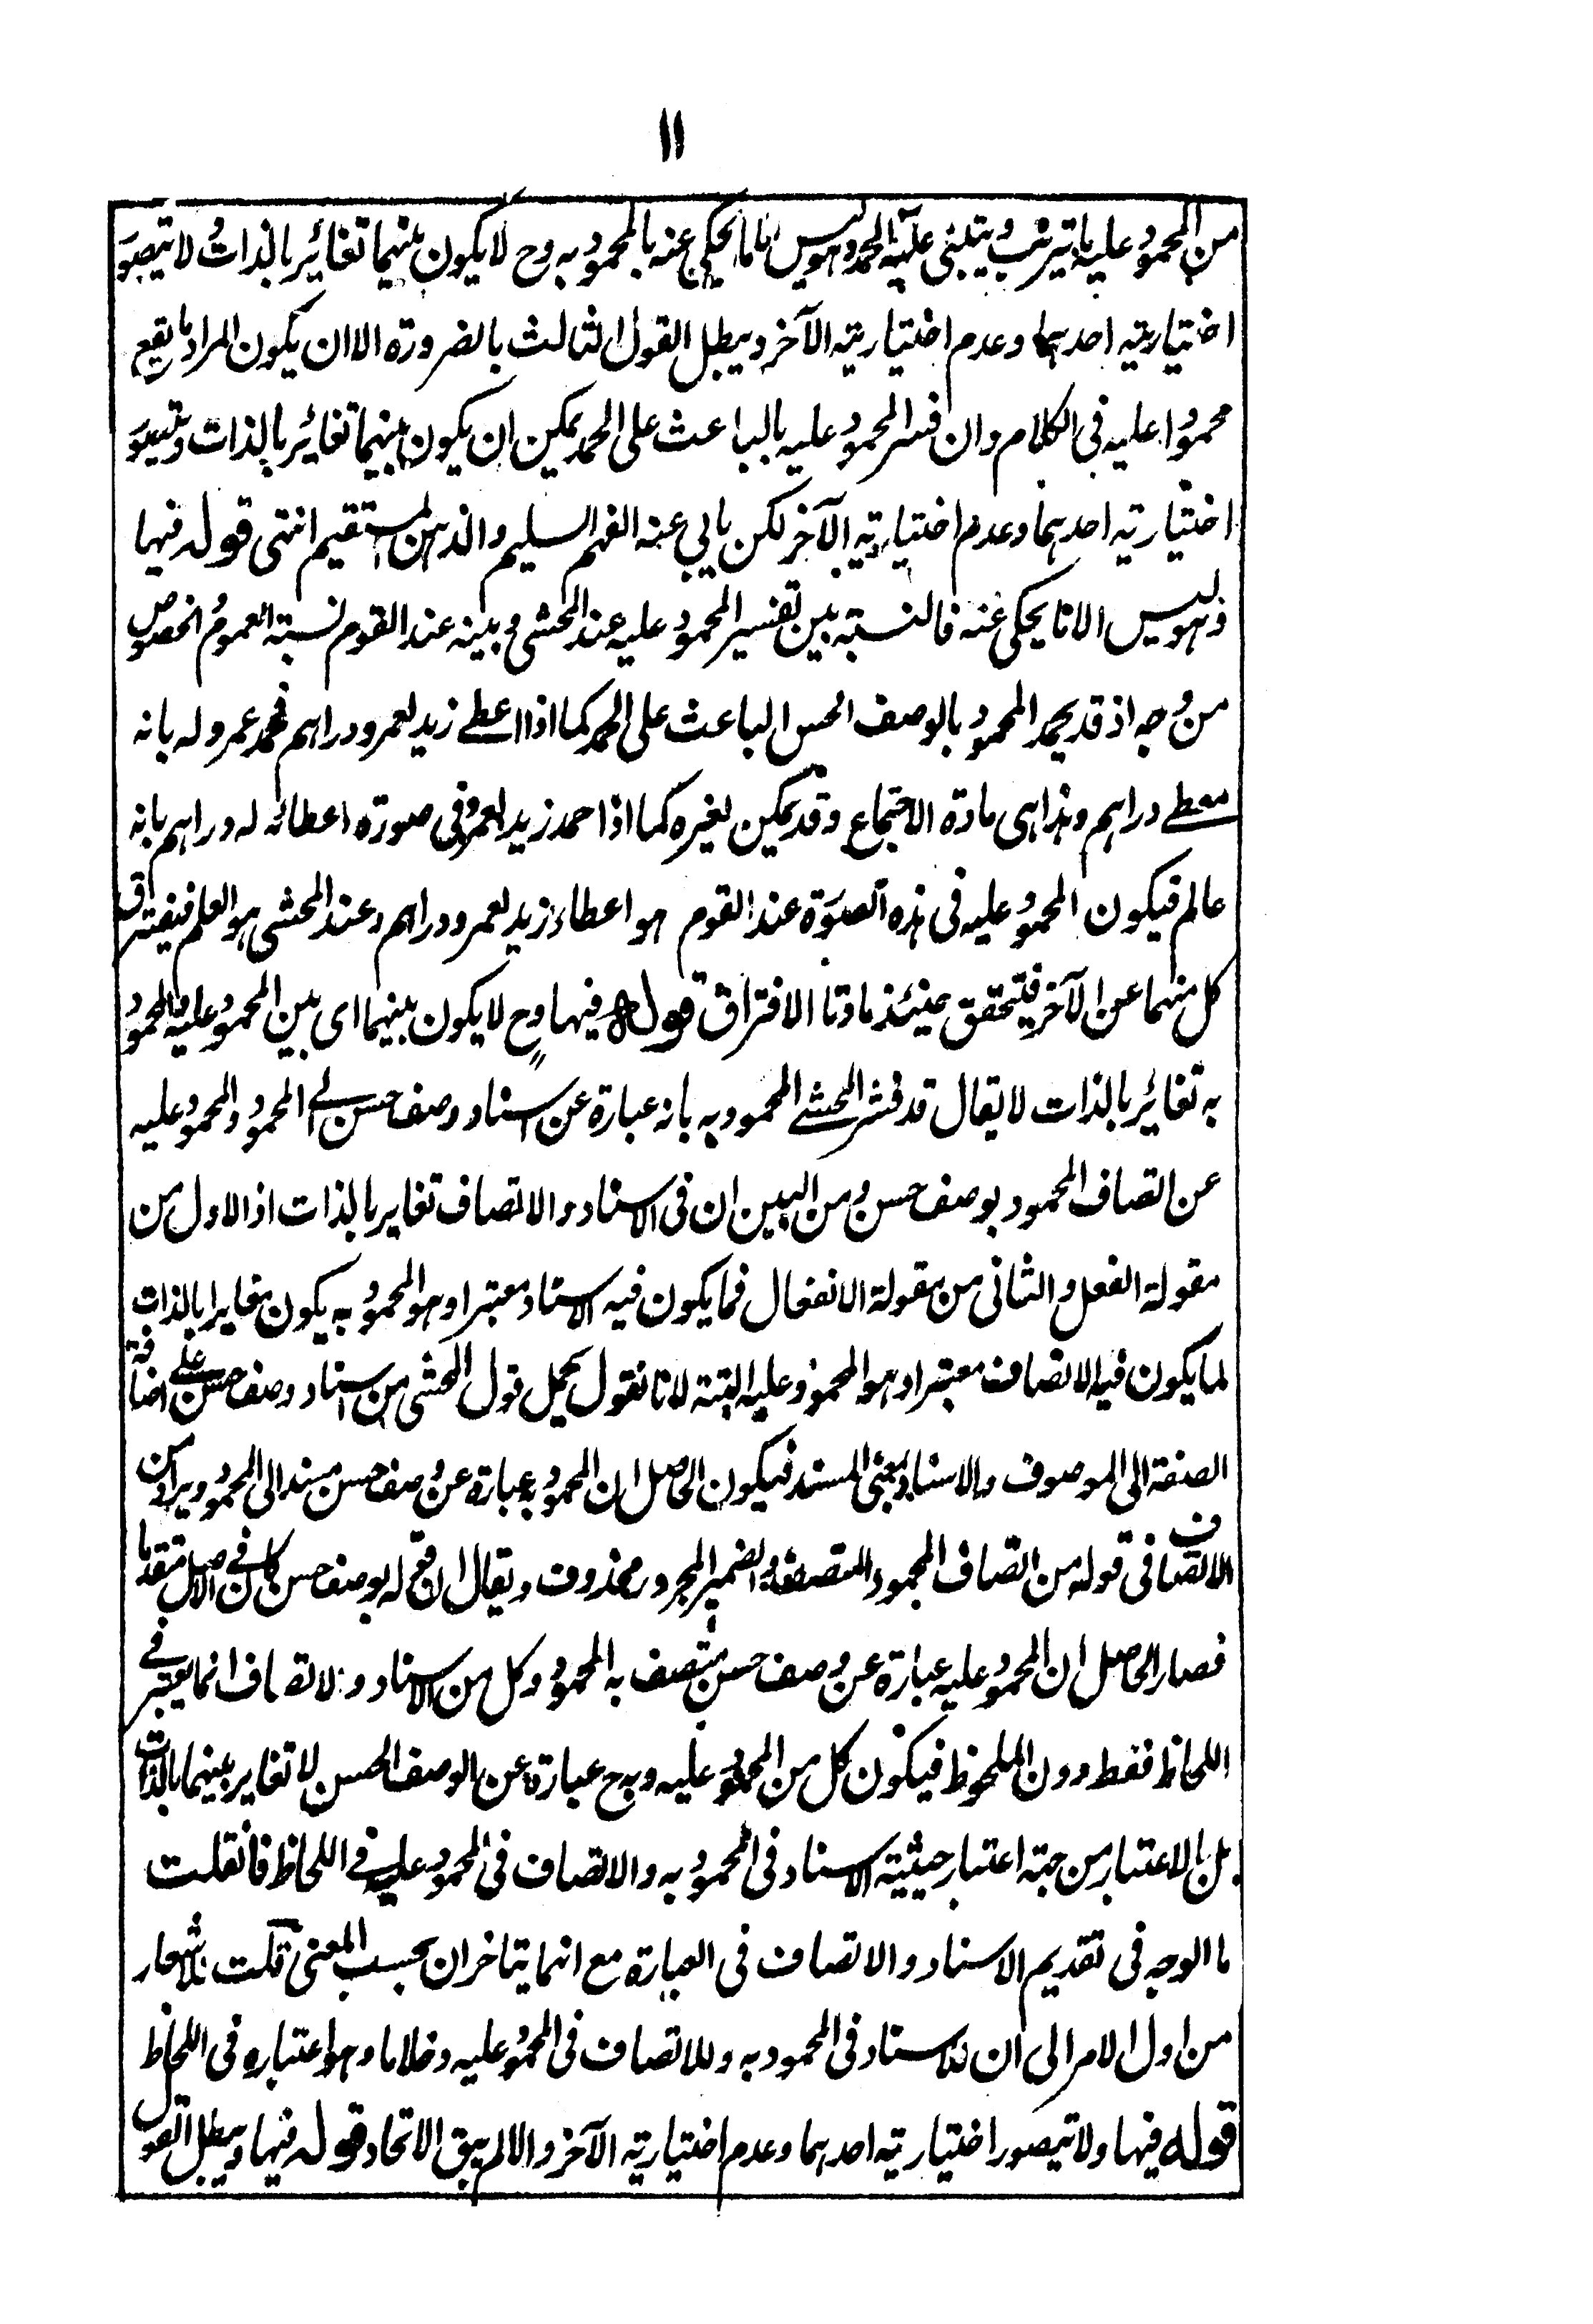 ١١
من المحمود عليه ما يترتب ويبتنى عليه الحمد وهو ليس الا ما يحكى عنه بالمحمود به وح لا يكون بينهما تغائر بالذات ولا يتصور
اختيارية احدهما وعدم اختيارية الآخر ويبطل القول الثالث بالضرورة الا ان يكون المراد ما يقع
محمودا عليه فى الكلام وان فسر المحمود عليه بالباعث على الحمد يمكن ان يكون بينهما تغائر بالذات ويتصور
اختيارية احدهما وعدم اختيارية الآخر لكن يابى عنه الفهم السليم والذهن المستقيم انتهى قوله فيها
وهو ليس الا ما يحكى عنه فالنسبة بين تفسير المحمود عليه عند المحشى وبينه عند القوم نسبة العموم والخصوص
من وجه اذ قد يحمد المحمود بالوصف الحسن الباعث على الحمد كما اذا اعطى زيد لعمرو دراهم فحمد عمرو له بانه
معطى دراهم وهذا هى مادة الاجتماع وقد يمكن لغيره كما اذا حمد زيد لعمرو فى صورة اعطائه له دراهم بانه
عالم فيكون المحمود عليه فى هذه الصورة عند القوم هو اعطاء زيد لعمرو دراهم وعند المحشى هو العلم فيفترق
كل منهما عن الآخر فيتحقق حينئذ مادتا الافتراق قوله فيها وح لا يكون بينهما اى بين المحمود عليه والمحمود
به تغائر بالذات لا يقال قد فسر المحشى المحمود به بانه عبارة عن اسناد وصف حسن الى المحمود والمحمود عليه
عن اتصاف المحمود بوصف حسن ومن البين ان فى الاسناد والاتصاف تغاير بالذات اذ الاول من
مقولة الفعل والثانى من مقولة الانفعال فما يكون فيه الاسناد معتبرا وهو المحمود به يكون مغايرا بالذات
لما يكون فيه الاتصاف معتبرا وهو المحمود عليه البتة لانا نقول يحمل قول المحشى من اسناد وصف حسن على اضافة
الصفة الى الموصوف والاسناد بمعنى المسند فيكون الحاصل ان المحمود به عبارة عن وصف حسن مسند الى المحمود ويراد من
الاتصاف فى قوله من اتصاف المحمود المتصف به والضمير المجرور محذوف ويقال ان قوله بوصف حسن كان فى الاصل متقدما
فصار الحاصل ان المحمود عليه عبارة عن وصف حسن متصف به المحمود وكل من الاسناد والاتصاف انما يعتبر فى
اللحاظ فقط دون الملحوظ فيكون كل من المحمود عليه وبه ح عبارة عن الوصف الحسن لا تغاير بينهما بالذات
بل بالاعتبار من جهة اعتبار حيثية الاسناد فى المحمود به والاتصاف فى المحمود عليه فى اللحاظ فان قلت
ما الوجه فى تقديم الاسناد والاتصاف فى العبارة مع انهما يتاخران بحسب المعنى قلت للاشعار
من اول الامر الى ان للاسناد فى المحمود به وللاتصاف فى المحمود عليه دخلا ما وهو اعتباره فى اللحاظ
قوله فيها ولا يتصور اختيارية احدهما وعدم اختيارية الآخر والا لم يبق الاتحاد قوله فيها ويبطل القول